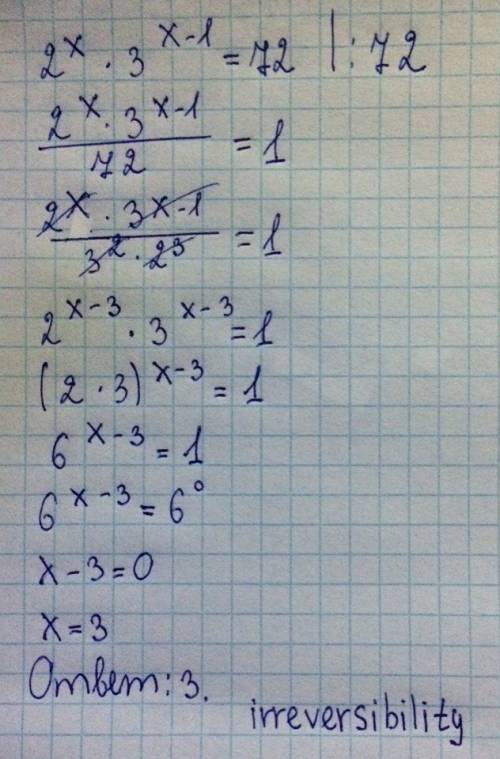 2^x · 3^(x-1) = 72 |: 72
(2^x · 3^(x-1))/72 = 1
(2^x · 3^(x-1))/(3^2 · 2^3) = 1
2^(x-3) · 3^(x-3) = 1
(2 · 3)^(x-3) = 1
6^(x-3) = 1
6^(x-3) = 6^0
x - 3 = 0
x = 3
Ответ: 3.
irreversibility